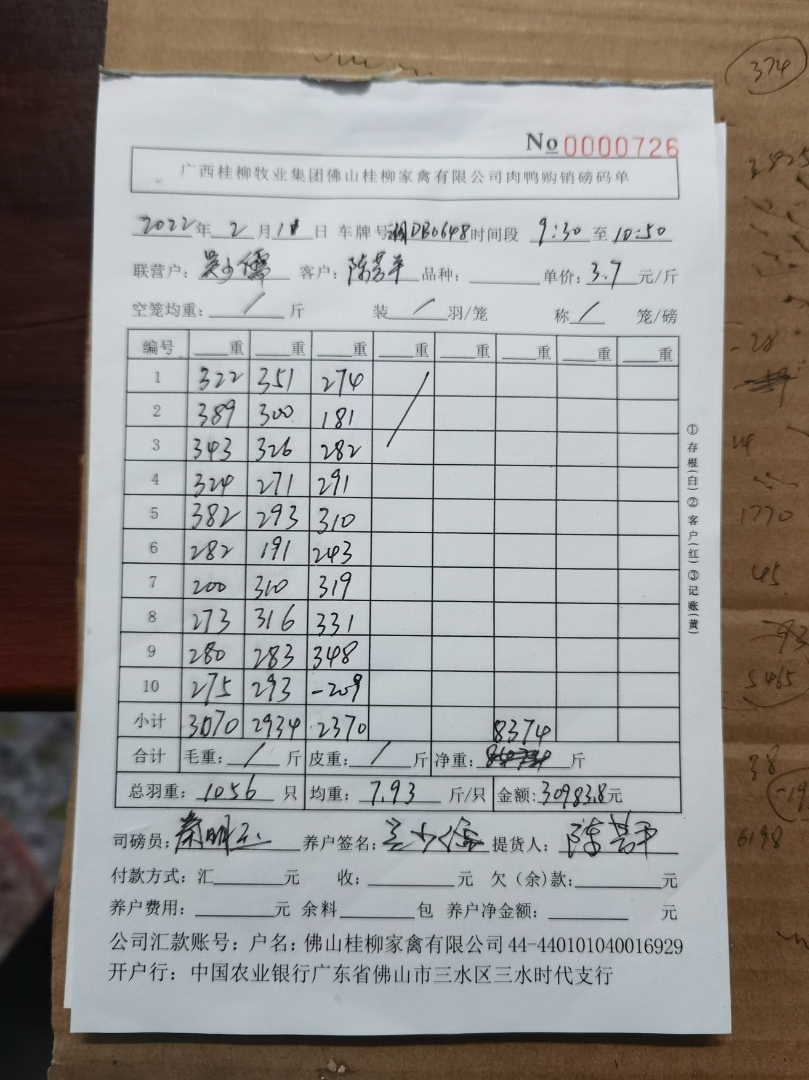 374
No 0000726
广西桂柳牧业集团佛山桂柳家禽有限公司肉鸭购销磅码单
2022年 2 月 1 日 车牌号 DB0648 时间段 9:30 至 10:50
联营户: 吴少儒 客户: 陈芳平 品种: 单价: 3.7 元/斤
空笼均重: / 斤 装 / 羽/笼 称 / 笼/磅
编号 重 重 重 重 重 重 重 重
1 322 351 274 /
2 389 300 181
3 343 326 282
4 324 271 291
5 382 293 310
6 282 191 243
7 200 310 319
8 273 316 331
9 280 283 348
10 275 293 -209
小计 3070 2934 2370 8374
合计 毛重: / 斤 皮重: / 斤 净重: 斤
总羽重: 1056 只 均重: 7.93 斤/只 金额: 30983.8元
司磅员: 养户签名: 吴少儒 提货人: 陈芳平
付款方式: 汇 元 收: 元 欠(余)款: 元
养户费用: 元 余料 包 养户净金额: 元
公司汇款账号: 户名: 佛山桂柳家禽有限公司 44-440101040016929
开户行: 中国农业银行广东省佛山市三水区三水时代支行
①存根(白)②客户(红)③记账(黄)
1770
45
5465
38
6198